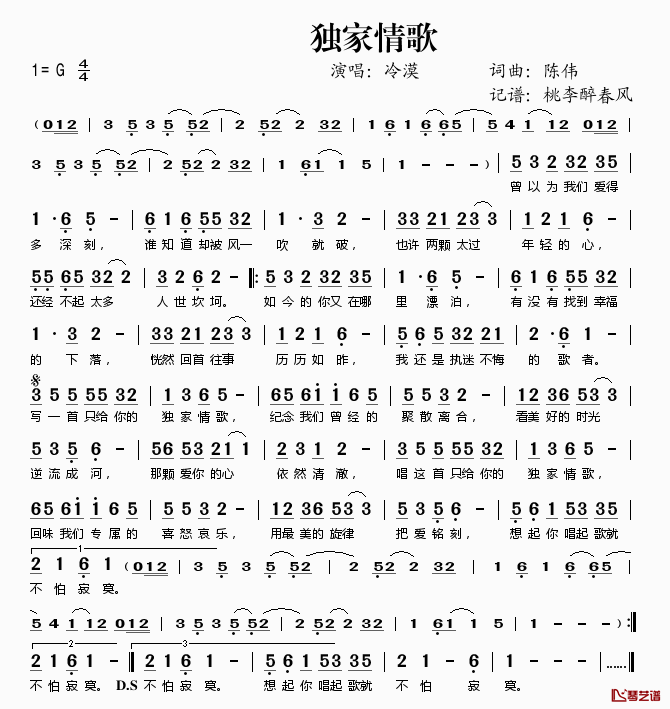 独家情歌
1= G 4/4 演唱：冷漠 词曲：陈伟
记谱：桃李醉春风
( 012 | 3 5 3 5 52 | 2 52 2 32 | 1 61 6 65 | 5 4 1 12 012 |
3 5 3 5 52 | 2 52 2 32 | 1 61 1 5 | 1 - - ) | 5 3 2 32 35 |
曾以为我们爱得
1 · 6 5 - | 6 1 6 55 32 | 1 · 3 2 - | 33 21 23 3 | 1 2 1 6 - |
多 深刻， 谁知道却被风一 吹 就破， 也许 两颗 太过 年轻的心，
55 65 32 2 | 3 2 6 2 - ‖: 5 3 2 32 35 | 1 · 6 5 - | 6 1 6 55 32 |
还经 不起 太多 人世坎坷。 如今的你又在哪 里 漂泊， 有没有找到幸福
1 · 3 2 - | 33 21 23 3 | 1 2 1 6 - | 5 6 5 32 21 | 2 · 6 1 - |
的 下落， 恍然回首往事 历历如昨， 我还是执迷不悔 的 歌者。
3 5 5 55 32 | 1 3 6 5 - | 65 61 1 6 5 | 5 5 3 2 - | 12 36 53 3 |
写一首只给你的 独家情歌， 纪念我们曾经的 聚散离合， 看美好的时光
5 3 5 6 - | 56 53 21 1 | 2 3 1 2 - | 3 5 5 55 32 | 1 3 6 5 - |
逆流成河， 那颗爱你的心 依然清澈， 唱这首只给你的 独家情歌，
65 61 1 6 5 | 5 5 3 2 - | 12 36 53 3 | 5 3 5 6 - | 5 6 1 53 35 |
回味我们专属的 喜怒哀乐， 用最美的旋律 把爱铭刻， 想起你唱起歌就
1
2 1 6 1 ( 012 | 3 5 3 5 52 | 2 52 2 32 | 1 61 6 65 |
不怕寂寞。
5 4 1 12 012 | 3 5 3 5 52 | 2 52 2 32 | 1 61 1 5 | 1 - - ) :‖
2 3
2 1 6 1 - ‖ 2 1 6 1 - | 5 6 1 53 35 | 2 - 1 - | 6 - 1 - |……‖
不怕寂寞。 D.S 不怕寂寞。 想起你唱起歌就 不 怕 寂 寞。
琴艺谱